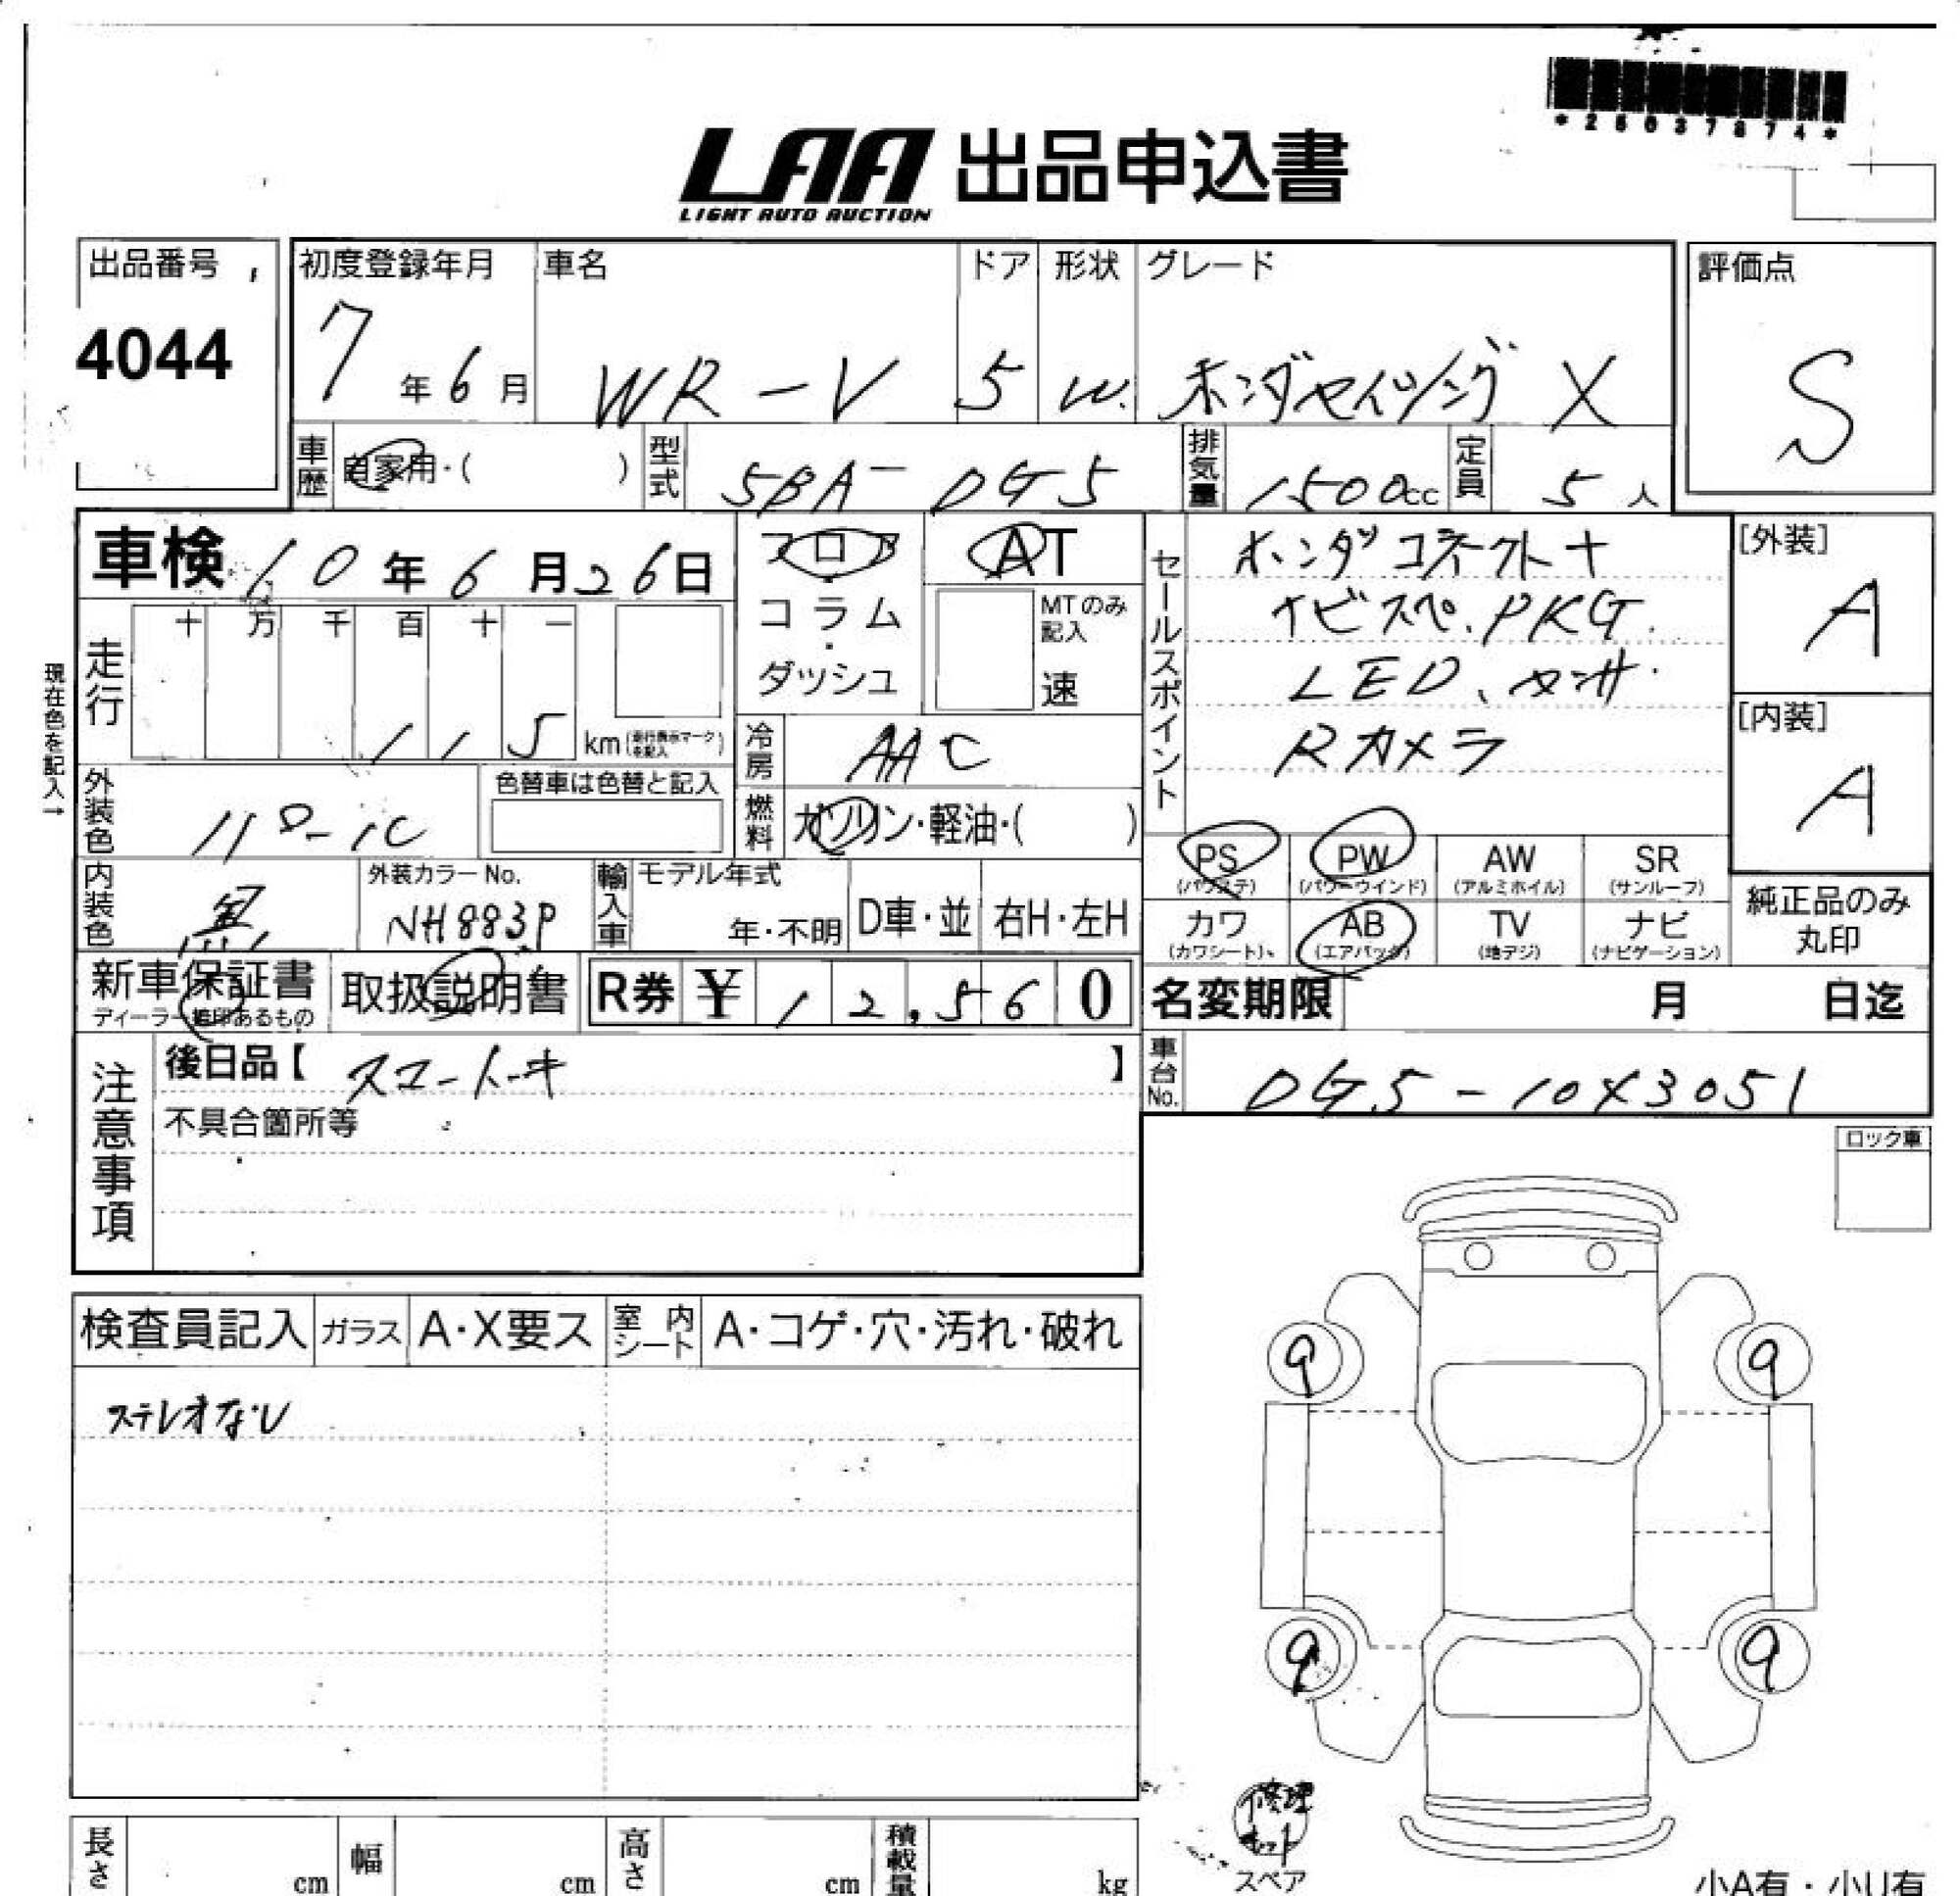 *25037874*
LAA 出品申込書
LIGHT AUTO AUCTION
出品番号
4044
初度登録年月
7年6月
車名
WR-V
ドア
5
形状
W.
グレード
ホンダセンシング X
評価点
S
車歴 自家用・( )
型式 5BA-DG5
排気量 1500cc
定員 5人
車検 10年6月26日
フロア・コラム・ダッシュ
AT
MTのみ記入
速
セールスポイント
ホンダコネクト+
ナビスペ.PKG.
LED、センサ.
Rカメラ
[外装]
A
[内装]
A
現在色を記入→
走行
十 万 千 百 十 一
115
km(走行表示マークを記入)
冷房 AAC
外装色 パール
色替車は色替と記入
燃料 ガソリン・軽油・( )
内装色 黒
外装カラーNo.
NH883P
輸入車
モデル年式
年・不明
D車・並
右H・左H
PS (パワステ)
PW (パワーウインド)
AW (アルミホイル)
SR (サンルーフ)
カワ (カワシート)
AB (エアバッグ)
TV (地デジ)
ナビ (ナビゲーション)
純正品のみ
丸印
新車保証書
ディーラー捺印あるもの
取扱説明書
R券 ¥12,560
名変期限 月 日迄
注意事項
後日品【 】
不具合箇所等
車台No. DG5-10X3051
ロック車
検査員記入
ガラス A・X要ス
室内シート A・コゲ・穴・汚れ・破れ
ステレオなし
9
9
9
9
修理
キット
スペア
長さ cm
幅 cm
高さ cm
積載量 kg
小A有・小U有